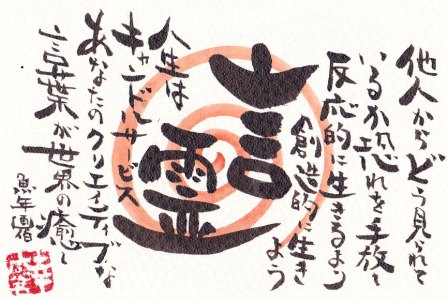 他人からどう見られて
いるか恐れを手放し
反応的に生きるより
創造的に生き
よう
言霊
人生は
キャンドルサービス
あなたのクリエイティブな
言葉が世界の癒し